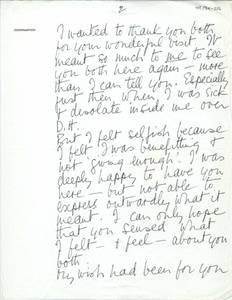 2
I wanted to thank you both
for your wonderful visit. It
meant so much to me to see
you both here again — more
than I can tell you. Especially
just then when I was sick
& desolate inside me over
D.H.
But I felt selfish because
I felt I was benefitting &
not "giving enough". I was
deeply happy to have you
here — but not able to
express outwardly what it
meant. I can only hope
that you sensed what
I felt — & feel — about you
both
My wish had been for you